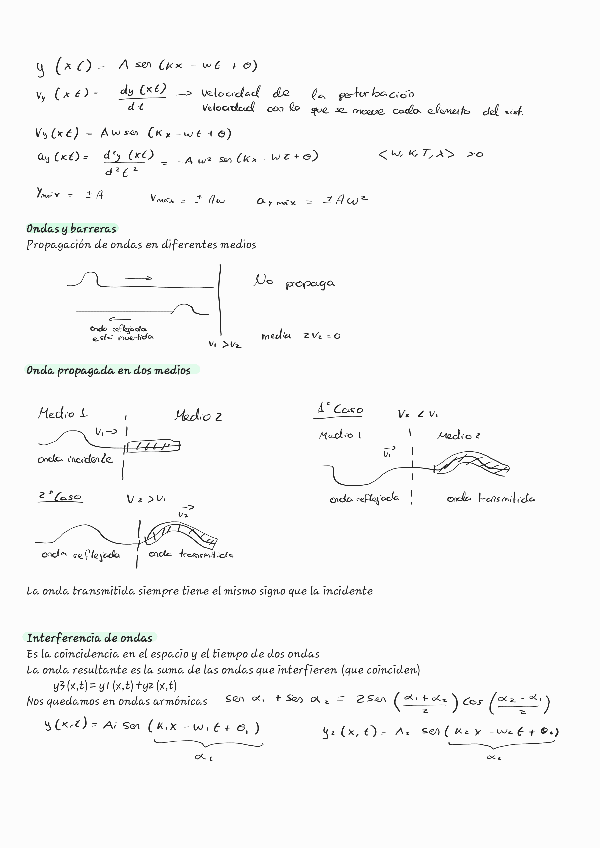 y (x t) = A sen (Kx - wt + θ)
Vy (x t) = dy (xt) / dt → Velocidad de la perturbación
Velocidad con lo que se mueve cada elemento del sist.
Vy(xt) = A w sen (Kx - wt + θ)
ay (xt) = d²y (xt) / d²t² = - A w² sen (Kx - wt + θ) < W, K, T, λ > >0
Ymáx = ± A Vmáx = ± Aw ay máx = ± A w²
Ondas y barreras
Propagación de ondas en diferentes medios
No propaga
onda reflejada
está invertida
V1 > V2 media 2 V2 = 0
Onda propagada en dos medios
Medio 1 Medio 2
V1 →
onda incidente
1º Caso V2 < V1
Medio 1 Medio 2
V1
onda reflejada onda transmitida
2º Caso V2 > V1
V2
onda reflejada onda transmitida
La onda transmitida siempre tiene el mismo signo que la incidente
Interferencia de ondas
Es la coincidencia en el espacio y el tiempo de dos ondas
La onda resultante es la suma de las ondas que interfieren (que coinciden)
y3(x,t) = y1(x,t) + y2(x,t)
Nos quedamos en ondas armónicas sen α1 + sen α2 = 2 sen (α1 + α2 / 2) cos (α2 - α1 / 2)
y(x,t) = A1 sen (K1x - w1t + θ1) y2 (x, t) = A2 sen (K2x - w2t + θ2)
α1 α2